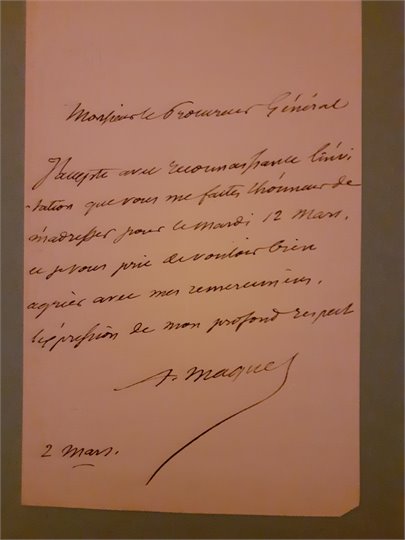 Monsieur le Procureur Général
J'accepte avec reconnaissance l'invi
tation que vous me faites l'honneur de
m'adresser pour le Mardi 12 Mars.
et je vous prie de vouloir bien
agréer avec mes remerciemens,
l'expression de mon profond respect
A. Maquet
2 Mars.